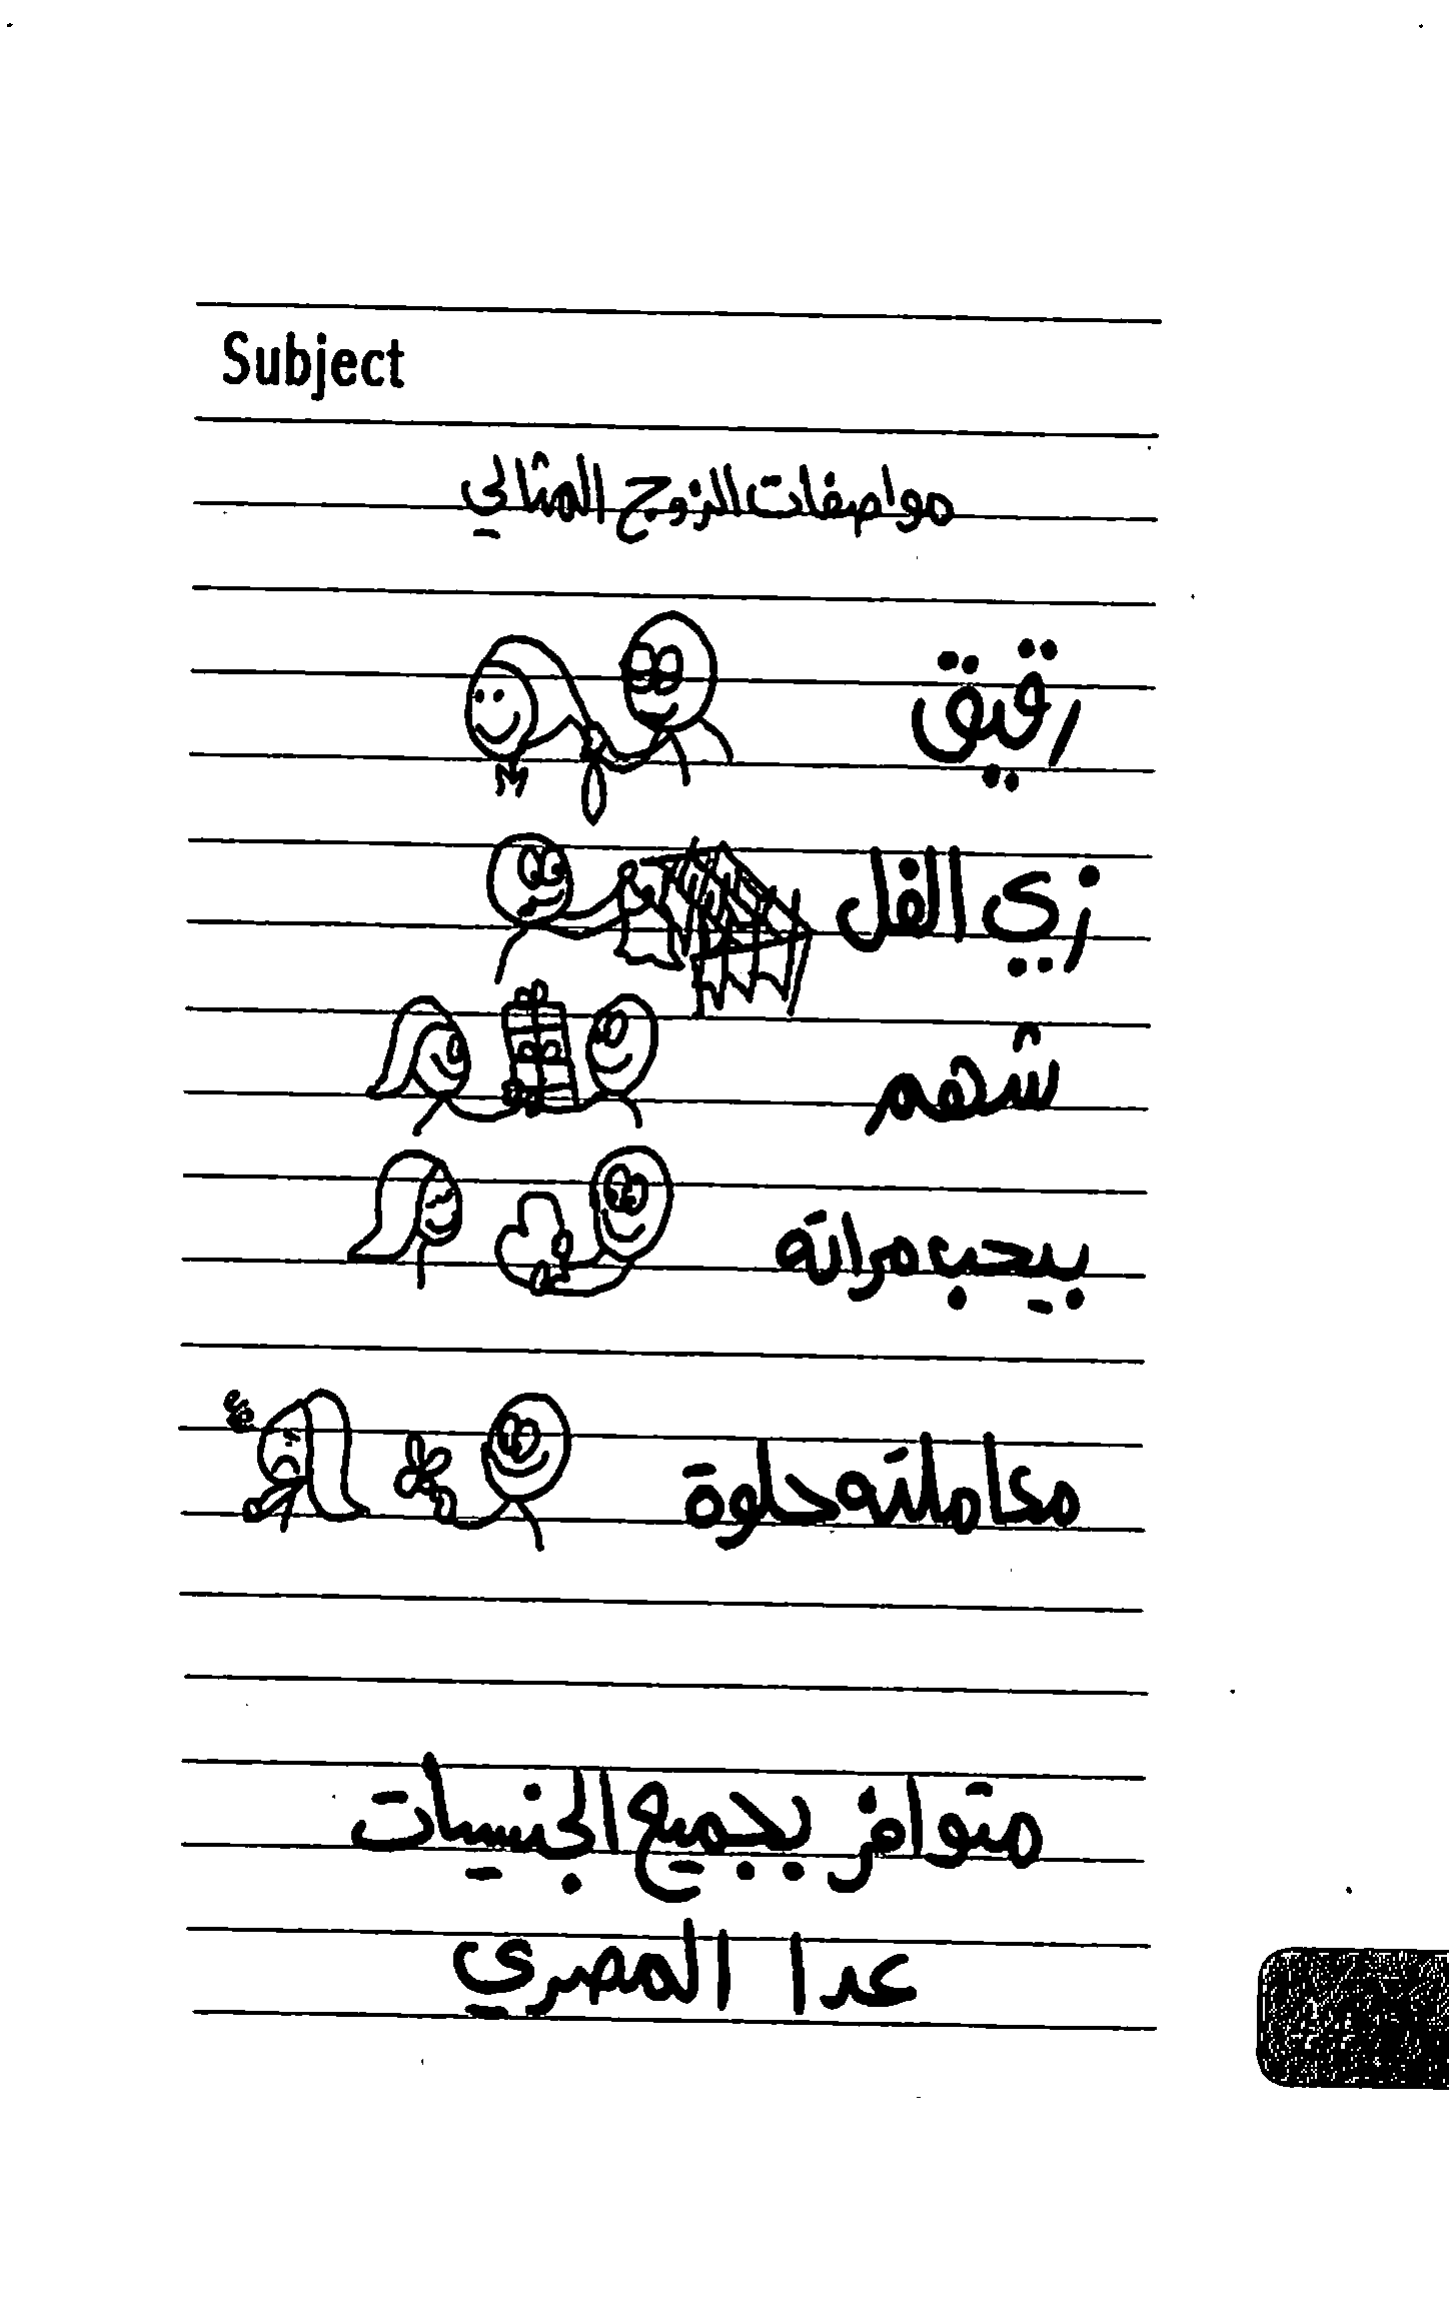 Subject
مواصفات الزوج المثالي
رقيق
زي الفل
شهم
بيحب مراته
معاملته حلوة
متوافر بجميع الجنسيات
عدا المصري